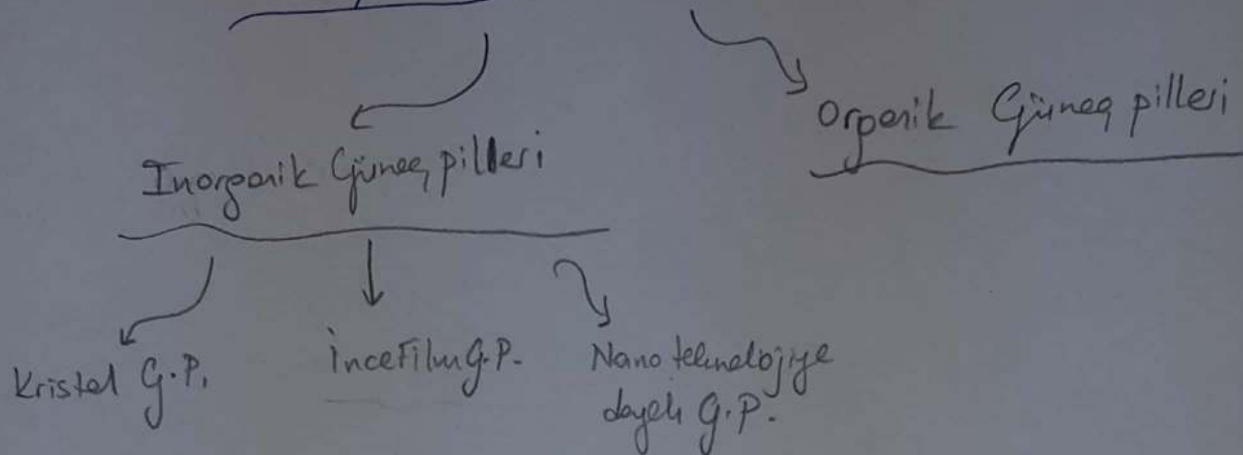 Organik Güneş pilleri
İnorganik Güneş pilleri
Kristal G.P.
İnce Film G.P.
Nano teknolojiye
dayalı G.P.